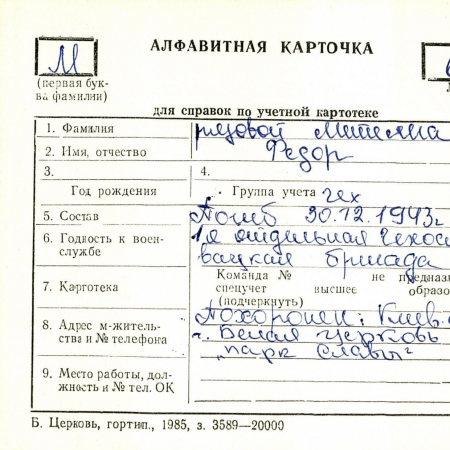 М
АЛФАВИТНАЯ КАРТОЧКА
(первая бук-
ва фамилии)
для справок по учетной картотеке
1. Фамилия
рядовой
2. Имя, отчество
Федор
3.
4.
Год рождения
Группа учета чех
5. Состав
Погиб 30.12.1943г
6. Годность к воен-
службе
1я отдельная Чехос
вацкая бригада
7. Картотека
Команда № не предназ
спецучет высшее образо
(подчеркнуть)
8. Адрес м-житель-
ства и № телефона
Похоронен: Киев
г. Белая Церковь
"парк Славы"
9. Место работы, дол-
жность и № тел. ОК
Б. Церковь, гортип., 1985, з. 3589—20000